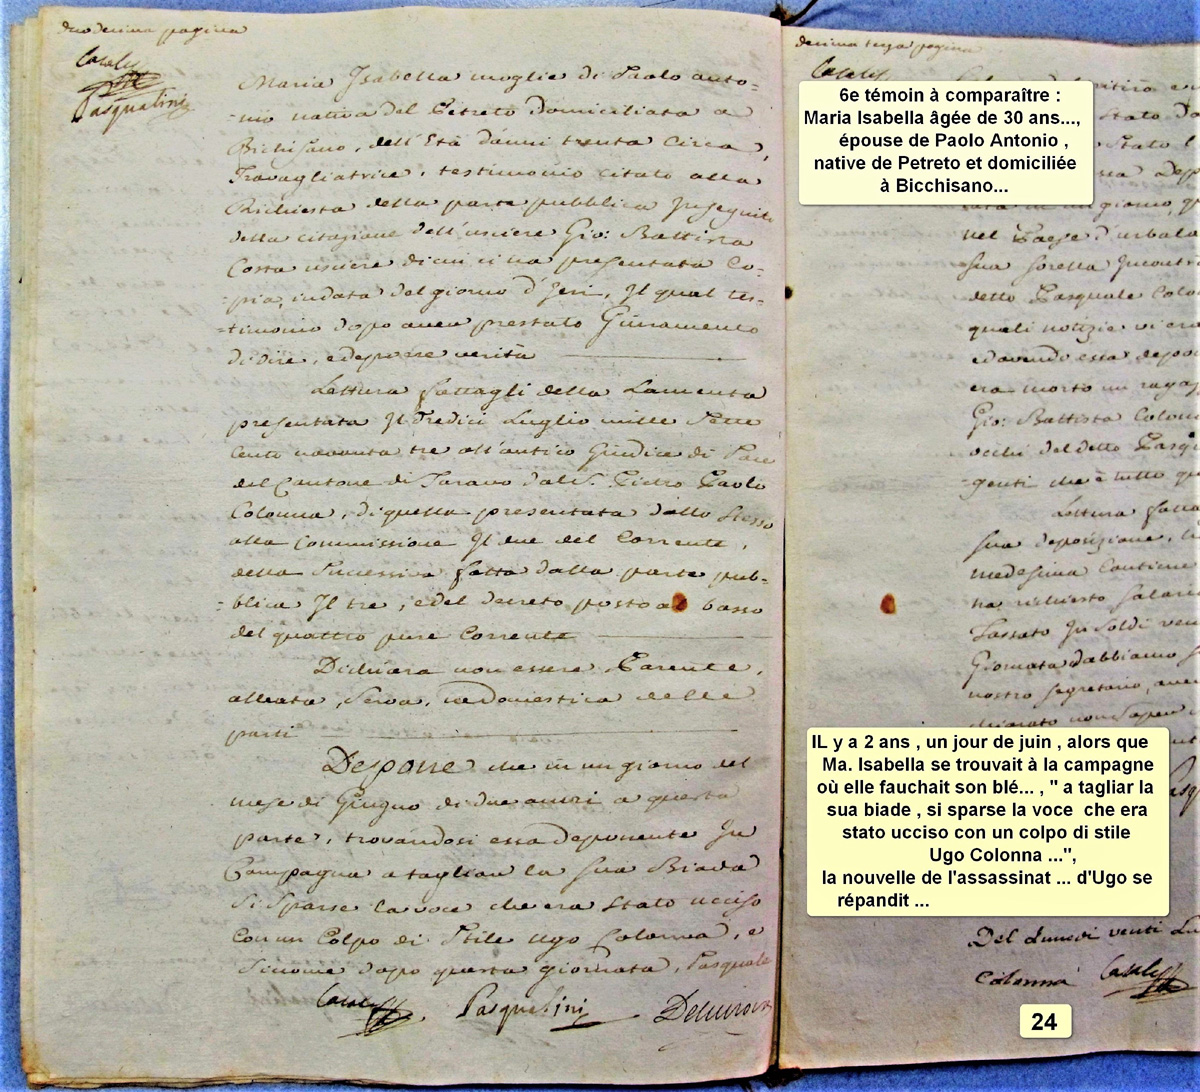 duodecima pagina
Casale
Pasqualini
Maria Isabella moglie di Paolo anto=
=nio nativa del Petreto domiciliata a
Bichisano, dell'Età d'anni trenta circa,
Travagliatrice, testimonio citato alla
Richiesta della parte pubblica In seguito
della citazione dell'usciere Gio: Battista
Costa usciere di cui ci ha presentata co=
pia, in data del giorno d'Jeri, Il qual tes=
=timonio dopo aver prestato Giuramento
di dire, e deporre verità
Lettura fattagli della Lamenta
presentata Il Tredici Luglio mille Sette
cento novanta tre all'antico Giudice di Pace
del Cantone di Taravo dal S. Pietro Paolo
Colonna, di quella presentata dallo Stesso
alla Commissione Il due del Corrente,
della Successiva fatta dalla parte pub=
=blica Il tre, e del decreto posto al basso
del quattro pure Corrente
Dichiara non essere Parente,
alleata, Serva, ne domestica delle
parti
Depone che in un giorno del
mese di Giugno di due anni a questa
parte, trovandosi essa deponente In
Campagna a tagliar la sua Biada
si sparse la voce che era stato ucciso
con un Colpo di Stile Ugo Colonna, e
siccome dopo questa giornata, Pasquale
Casale Pasqualini
decima terza pagina
Casale
6e témoin à comparaître :
Maria Isabella âgée de 30 ans...,
épouse de Paolo Antonio ,
native de Petreto et domiciliée
à Bicchisano...
nel Paese d'urbala
sua sorella Incontr
detto Pasquale Colo
quali notizie vi era
edavendo essa depo
era morto un ragaz
Gio: Battista Colon
occhi del detto Pasq
=genti che è tutto qu
Lettura fatta
sua deposizione,
medesima contiene
ha richiesto salario
Tassato In soldi ven
Giornata d'abbiamo
nostro segretario, aven
IL y a 2 ans , un jour de juin , alors que
Ma. Isabella se trouvait à la campagne
où elle fauchait son blé... , " a tagliar la
sua biade , si sparse la voce che era
stato ucciso con un colpo di stile
Ugo Colonna ...",
la nouvelle de l'assassinat ... d'Ugo se
répandit ...
Del Lunedi venti Lu
Colonna Casale
24